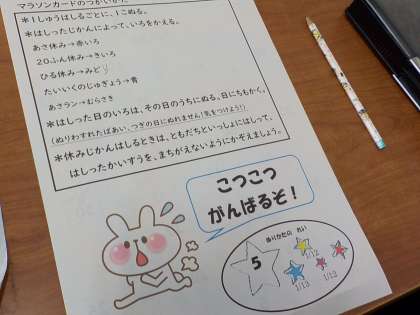 マラソンカードのつかいかた
＊1しゅうはしるごとに、1こぬる。
＊はしったじかんによって、いろをかえる。
あさ休み→赤いろ
20ぷん休み→きいろ
ひる休み→みどり
たいいくのじゅぎょう→青
あさラン→むらさき
＊はしった日のいろは、その日のうちにぬる。日にちもかく。
(ぬりわすれたばあい、つぎの日にぬれません！気をつけよう！)
＊休みじかんはしるときは、ともだちといっしょにはしって、
はしったかいすうを、まちがえないようにかぞえましょう。
こつこつ
がんばるぞ！
ぬりかたの れい
5
1/12
1/13
1/12